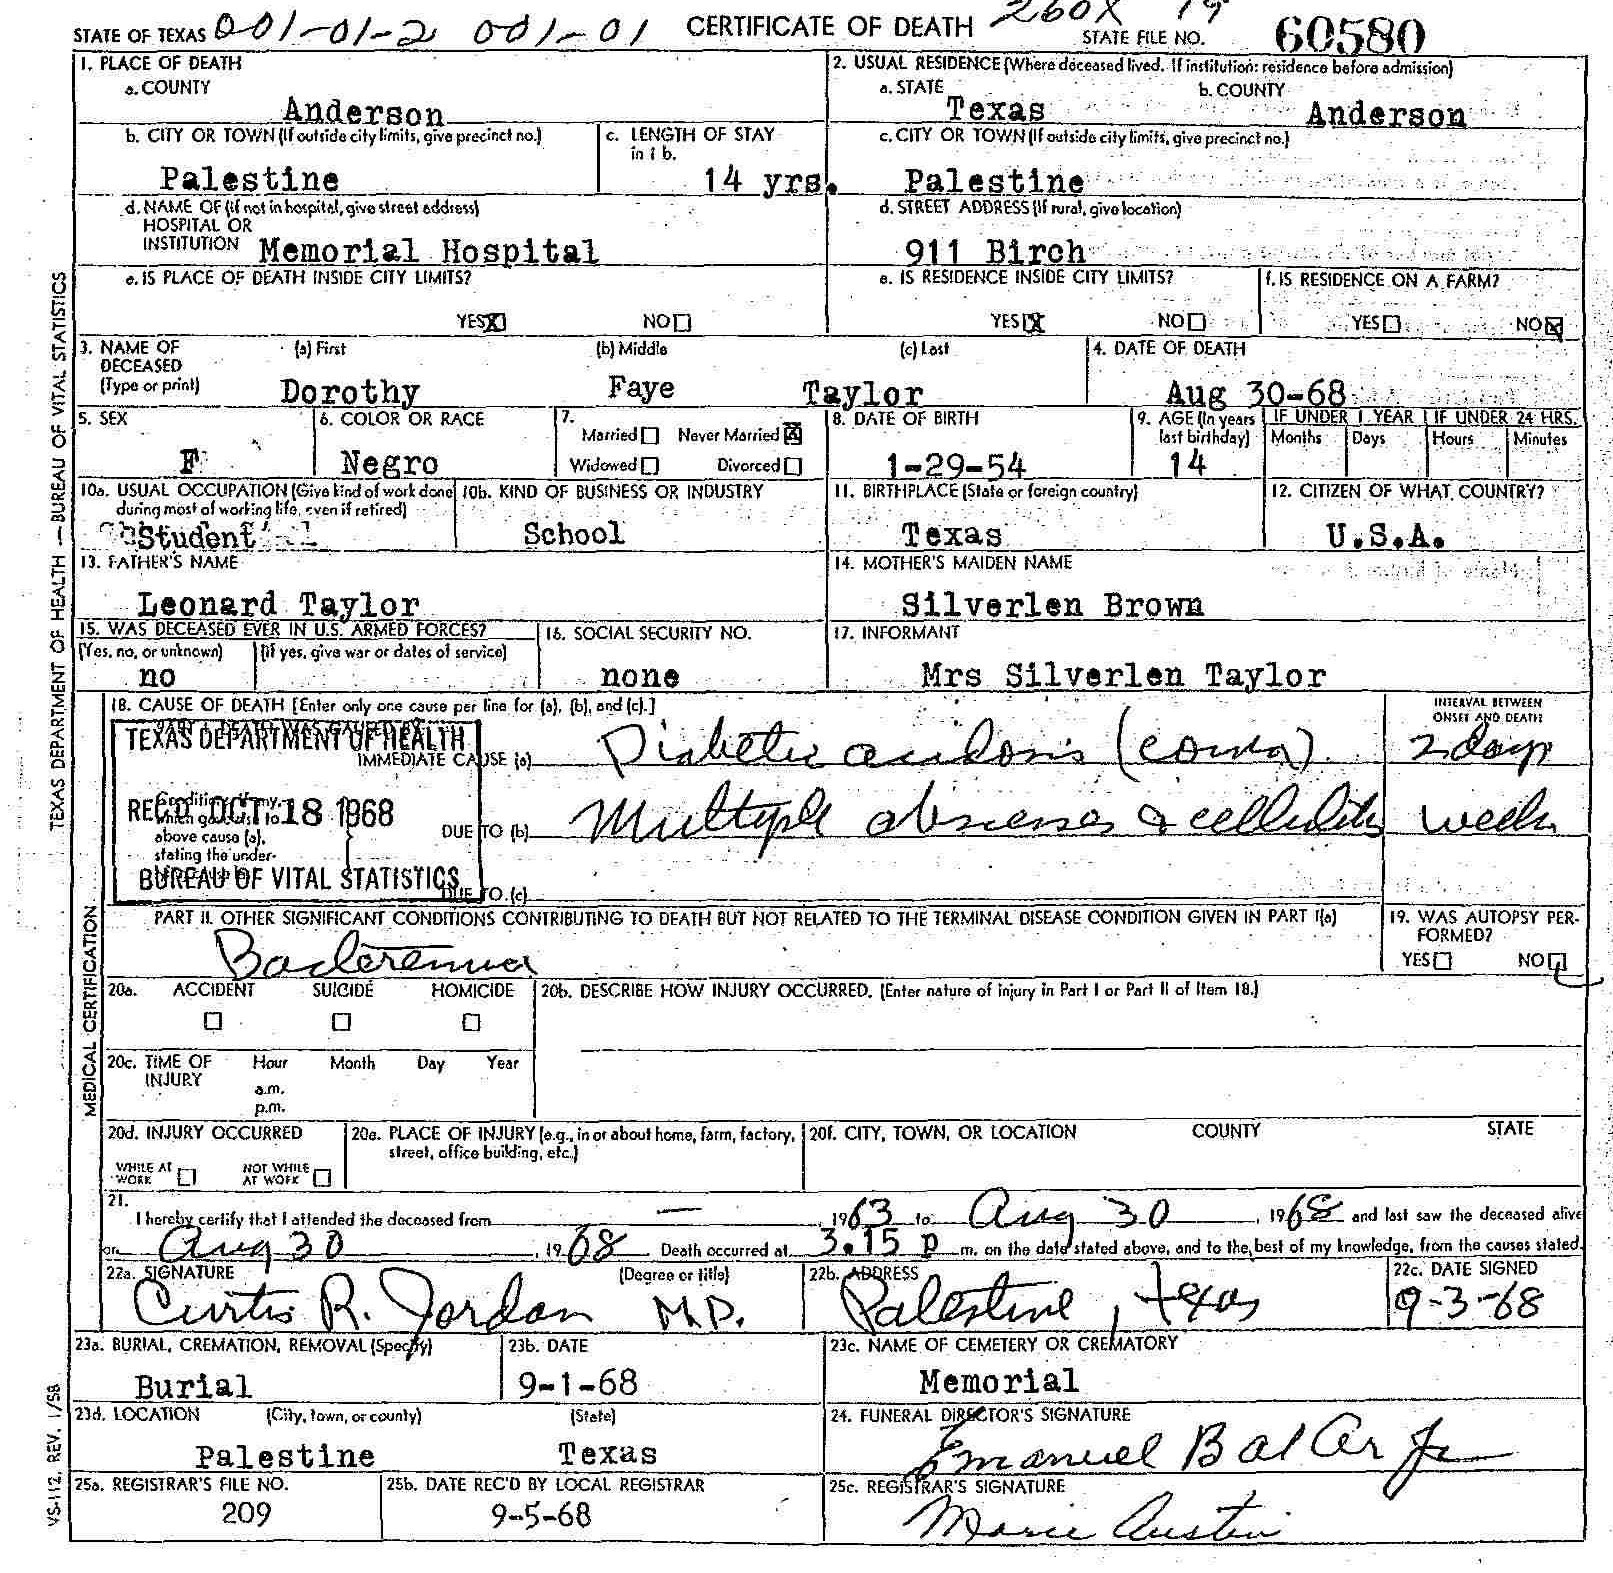 STATE OF TEXAS 001-01-2 001-01 CERTIFICATE OF DEATH 260X 19 STATE FILE NO. 60580
1. PLACE OF DEATH
a. COUNTY
Anderson
2. USUAL RESIDENCE (Where deceased lived. If institution: residence before admission)
a. STATE b. COUNTY
Texas Anderson
b. CITY OR TOWN (If outside city limits, give precinct no.)
Palestine
c. LENGTH OF STAY
in 1 b.
14 yrs.
c. CITY OR TOWN (If outside city limits, give precinct no.)
Palestine
d. NAME OF (If not in hospital, give street address)
HOSPITAL OR
INSTITUTION Memorial Hospital
d. STREET ADDRESS (If rural, give location)
911 Birch
e. IS PLACE OF DEATH INSIDE CITY LIMITS?
YES NO
e. IS RESIDENCE INSIDE CITY LIMITS?
YES NO
f. IS RESIDENCE ON A FARM?
YES NO
3. NAME OF
DECEASED
(Type or print)
(a) First (b) Middle (c) Last
Dorothy Faye Taylor
4. DATE OF DEATH
Aug 30-68
5. SEX
F
6. COLOR OR RACE
Negro
7.
Married Never Married
Widowed Divorced
8. DATE OF BIRTH
1-29-54
9. AGE (In years
last birthday)
14
IF UNDER 1 YEAR IF UNDER 24 HRS.
Months Days Hours Minutes
10a. USUAL OCCUPATION (Give kind of work done
during most of working life, even if retired)
Student
10b. KIND OF BUSINESS OR INDUSTRY
School
11. BIRTHPLACE (State or foreign country)
Texas
12. CITIZEN OF WHAT COUNTRY?
U.S.A.
13. FATHER'S NAME
Leonard Taylor
14. MOTHER'S MAIDEN NAME
Silverlen Brown
15. WAS DECEASED EVER IN U.S. ARMED FORCES?
(Yes, no, or unknown) (If yes, give war or dates of service)
no
16. SOCIAL SECURITY NO.
none
17. INFORMANT
Mrs Silverlen Taylor
18. CAUSE OF DEATH [Enter only one cause per line for (a), (b), and (c).]
INTERVAL BETWEEN
ONSET AND DEATH
PART I. DEATH WAS CAUSED BY:
TEXAS DEPARTMENT OF HEALTH
IMMEDIATE CAUSE (a) Diabetic acidosis (coma) 2 days
REC'D OCT 18 1968
Conditions, if any,
which gave rise to
above cause (a),
stating the under-
DUE TO (b) Multiple abscesses & cellulitis weeks
BUREAU OF VITAL STATISTICS
DUE TO (c)
PART II. OTHER SIGNIFICANT CONDITIONS CONTRIBUTING TO DEATH BUT NOT RELATED TO THE TERMINAL DISEASE CONDITION GIVEN IN PART I(a)
Bacteremia
19. WAS AUTOPSY PER-
FORMED?
YES NO
20a. ACCIDENT SUICIDE HOMICIDE
20b. DESCRIBE HOW INJURY OCCURRED. (Enter nature of injury in Part I or Part II of Item 18.)
20c. TIME OF
INJURY
Hour Month Day Year
a.m.
p.m.
20d. INJURY OCCURRED
WHILE AT
WORK
NOT WHILE
AT WORK
20e. PLACE OF INJURY (e.g., in or about home, farm, factory,
street, office building, etc.)
20f. CITY, TOWN, OR LOCATION COUNTY STATE
21.
I hereby certify that I attended the deceased from — , 1963 to Aug 30 , 1968 and last saw the deceased alive
on Aug 30 , 1968 Death occurred at 3.15 p m. on the date stated above, and to the best of my knowledge, from the causes stated.
22a. SIGNATURE (Degree or title)
Curtis R. Jordan M.D.
22b. ADDRESS
Palestine, texas
22c. DATE SIGNED
9-3-68
23a. BURIAL, CREMATION, REMOVAL (Specify)
Burial
23b. DATE
9-1-68
23c. NAME OF CEMETERY OR CREMATORY
Memorial
23d. LOCATION (City, town, or county) (State)
Palestine Texas
24. FUNERAL DIRECTOR'S SIGNATURE
25a. REGISTRAR'S FILE NO.
209
25b. DATE REC'D BY LOCAL REGISTRAR
9-5-68
25c. REGISTRAR'S SIGNATURE
Marie Austin
TEXAS DEPARTMENT OF HEALTH — BUREAU OF VITAL STATISTICS
MEDICAL CERTIFICATION
VS-112, REV. 1/58